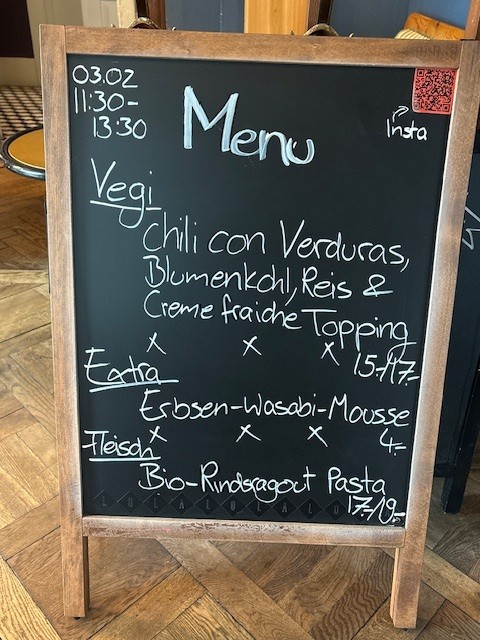 03.02
11:30-
13:30
Insta
Menu
Vegi
Chili con Verduras,
Blumenkohl, Reis &
Creme fraiche Topping
x x x
15.-/17.-
Extra
Erbsen-Wasabi-Mousse
4.-
x x x
Fleisch
Bio-Rindsragout Pasta
17.-/19.-
LOLALOLALO